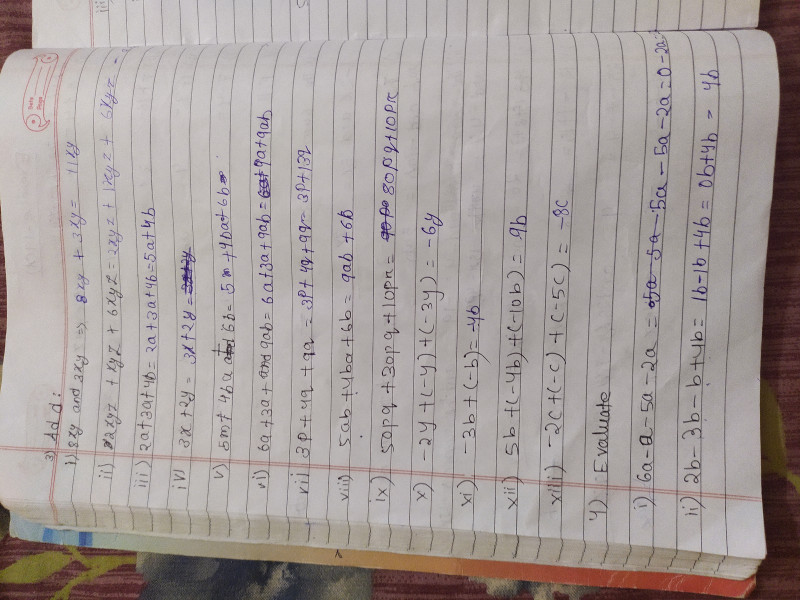 3) Add:
i) 8xy and 3xy ⇒ 8xy + 3xy = 11xy
ii) 2xyz + xyz + 6xyz = 2xyz + 1xyz + 6xyz =
iii) 2a+3a+4b = 2a+3a+4b = 5a+4b
iv) 3x+2y = 3x+2y =
v) 5m+4ba + 6b = 5m+4ba+6b
vi) 6a+3a+ and 9ab = 6a+3a+9ab = 9a+9ab
vii) 3p+4q+9q = 3p+4q+9q = 3p+13q
viii) 5ab+4ba+6b = 9ab+6b
ix) 50pq+30pq+10pr = 80pq+10pr
x) -2y+(-y)+(-3y) = -6y
xi) -3b+(-b) = -4b
xii) 5b+(-4b)+(-10b) = 9b
xiii) -2c+(-c)+(-5c) = -8c
4) Evaluate
i) 6a-a-5a-2a = 5a-5a-5a-2a = 0-2a
ii) 2b-3b-b+4b = 1b-1b+4b = 0b+4b = 4b
Date
Page